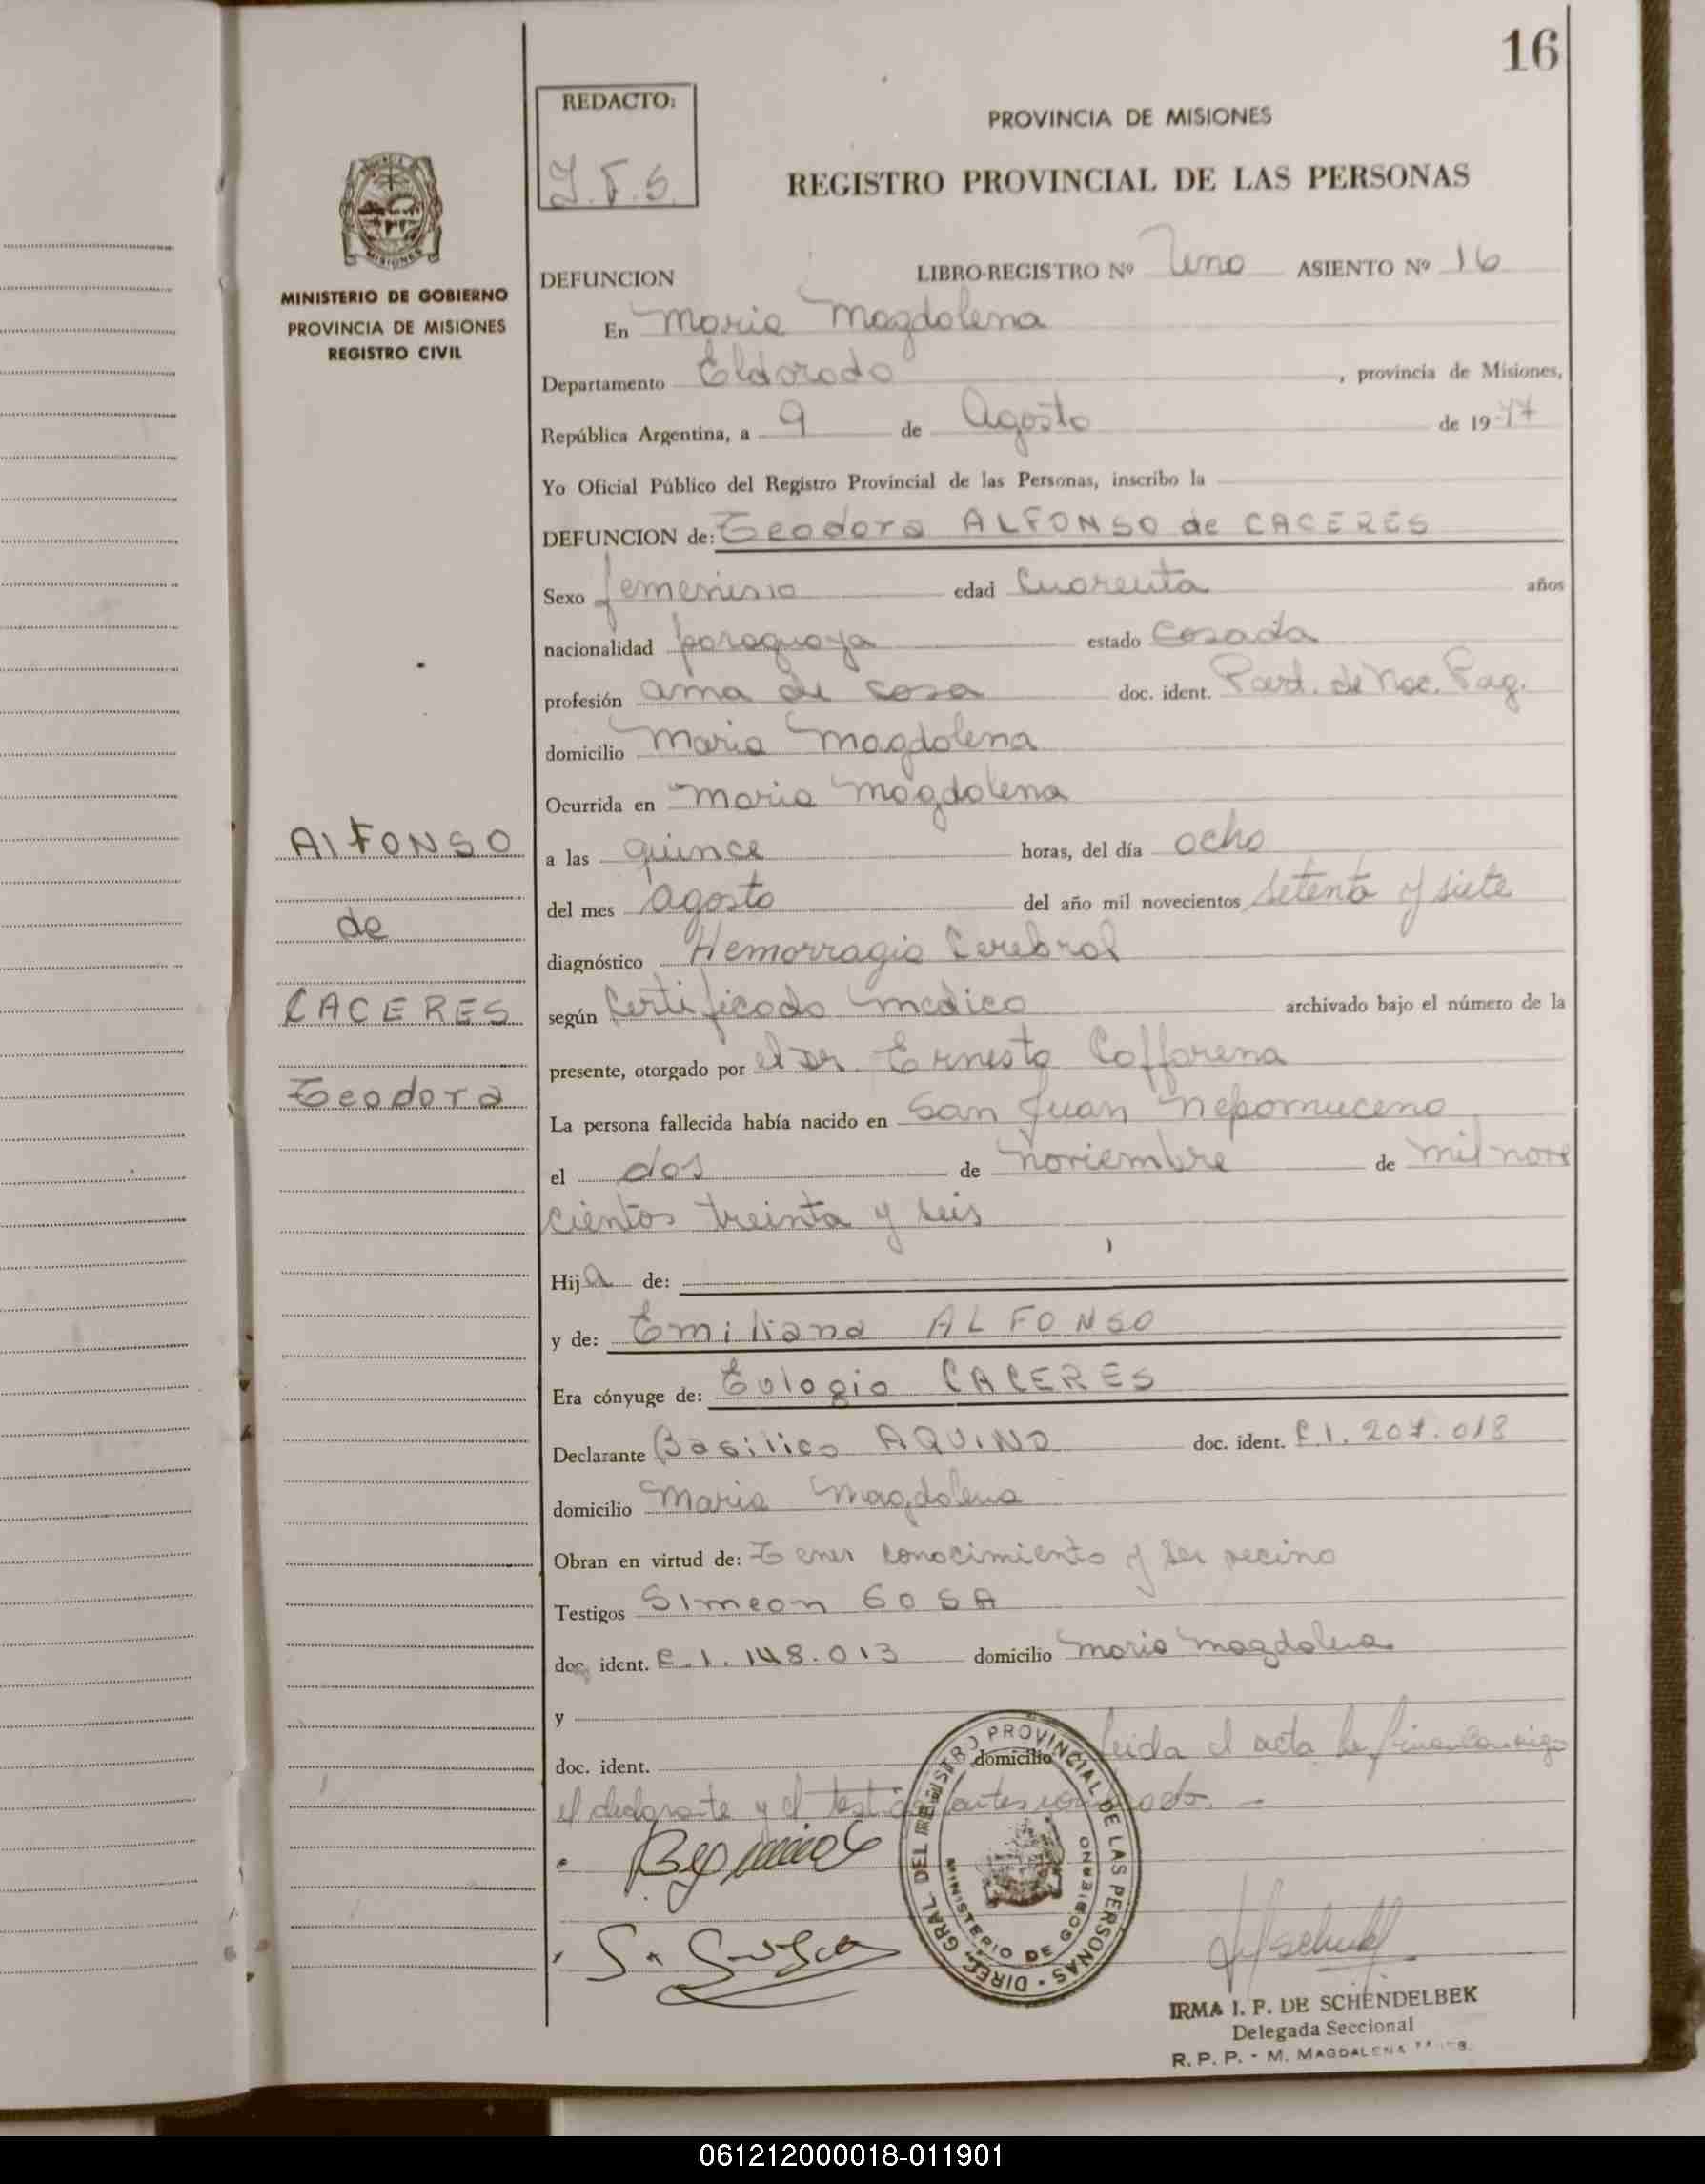 16
REDACTO:
PROVINCIA DE MISIONES
REGISTRO PROVINCIAL DE LAS PERSONAS
MISIONES
MINISTERIO DE GOBIERNO
PROVINCIA DE MISIONES
REGISTRO CIVIL
DEFUNCION LIBRO-REGISTRO Nº Uno ASIENTO Nº 16
En Maria Magdalena
Departamento Eldorado , provincia de Misiones,
República Argentina, a 9 de Agosto de 1977
Yo Oficial Público del Registro Provincial de las Personas, inscribo la
DEFUNCION de: Teodora ALFONSO de CACERES
Sexo femenino edad Cuarenta años
nacionalidad paraguaya estado Casada
profesión ama de casa doc. ident. Part. de Nac. Pag.
domicilio Maria Magdalena
Ocurrida en Maria Magdalena
ALFONSO
de
CACERES
Teodora
a las quince horas, del día ocho
del mes agosto del año mil novecientos setenta y siete
diagnóstico Hemorragia Cerebral
según Certificado medico archivado bajo el número de la
presente, otorgado por el Dr. Ernesto Coffarena
La persona fallecida había nacido en San Juan Nepomuceno
el dos de noviembre de mil nove
cientos treinta y seis
Hija de:
y de: Emiliana ALFONSO
Era cónyuge de: Eulogio CACERES
Declarante Basilico AQUINO doc. ident. C.I. 207.018
domicilio Maria Magdalena
Obran en virtud de: Tener conocimiento y ser vecino
Testigos Simeon SOSA
doc. ident. C.I. 148.013 domicilio Maria Magdalena
y
doc. ident. domicilio Leida el acta la firman conmigo
el declarante y el testigo antes
DIREC. GRAL. DEL REGISTRO PROVINCIAL DE LAS PERSONAS
MINISTERIO DE GOBIERNO
IRMA I. P. DE SCHENDELBEK
Delegada Seccional
R. P. P. - M. MAGDALENA
061212000018-011901